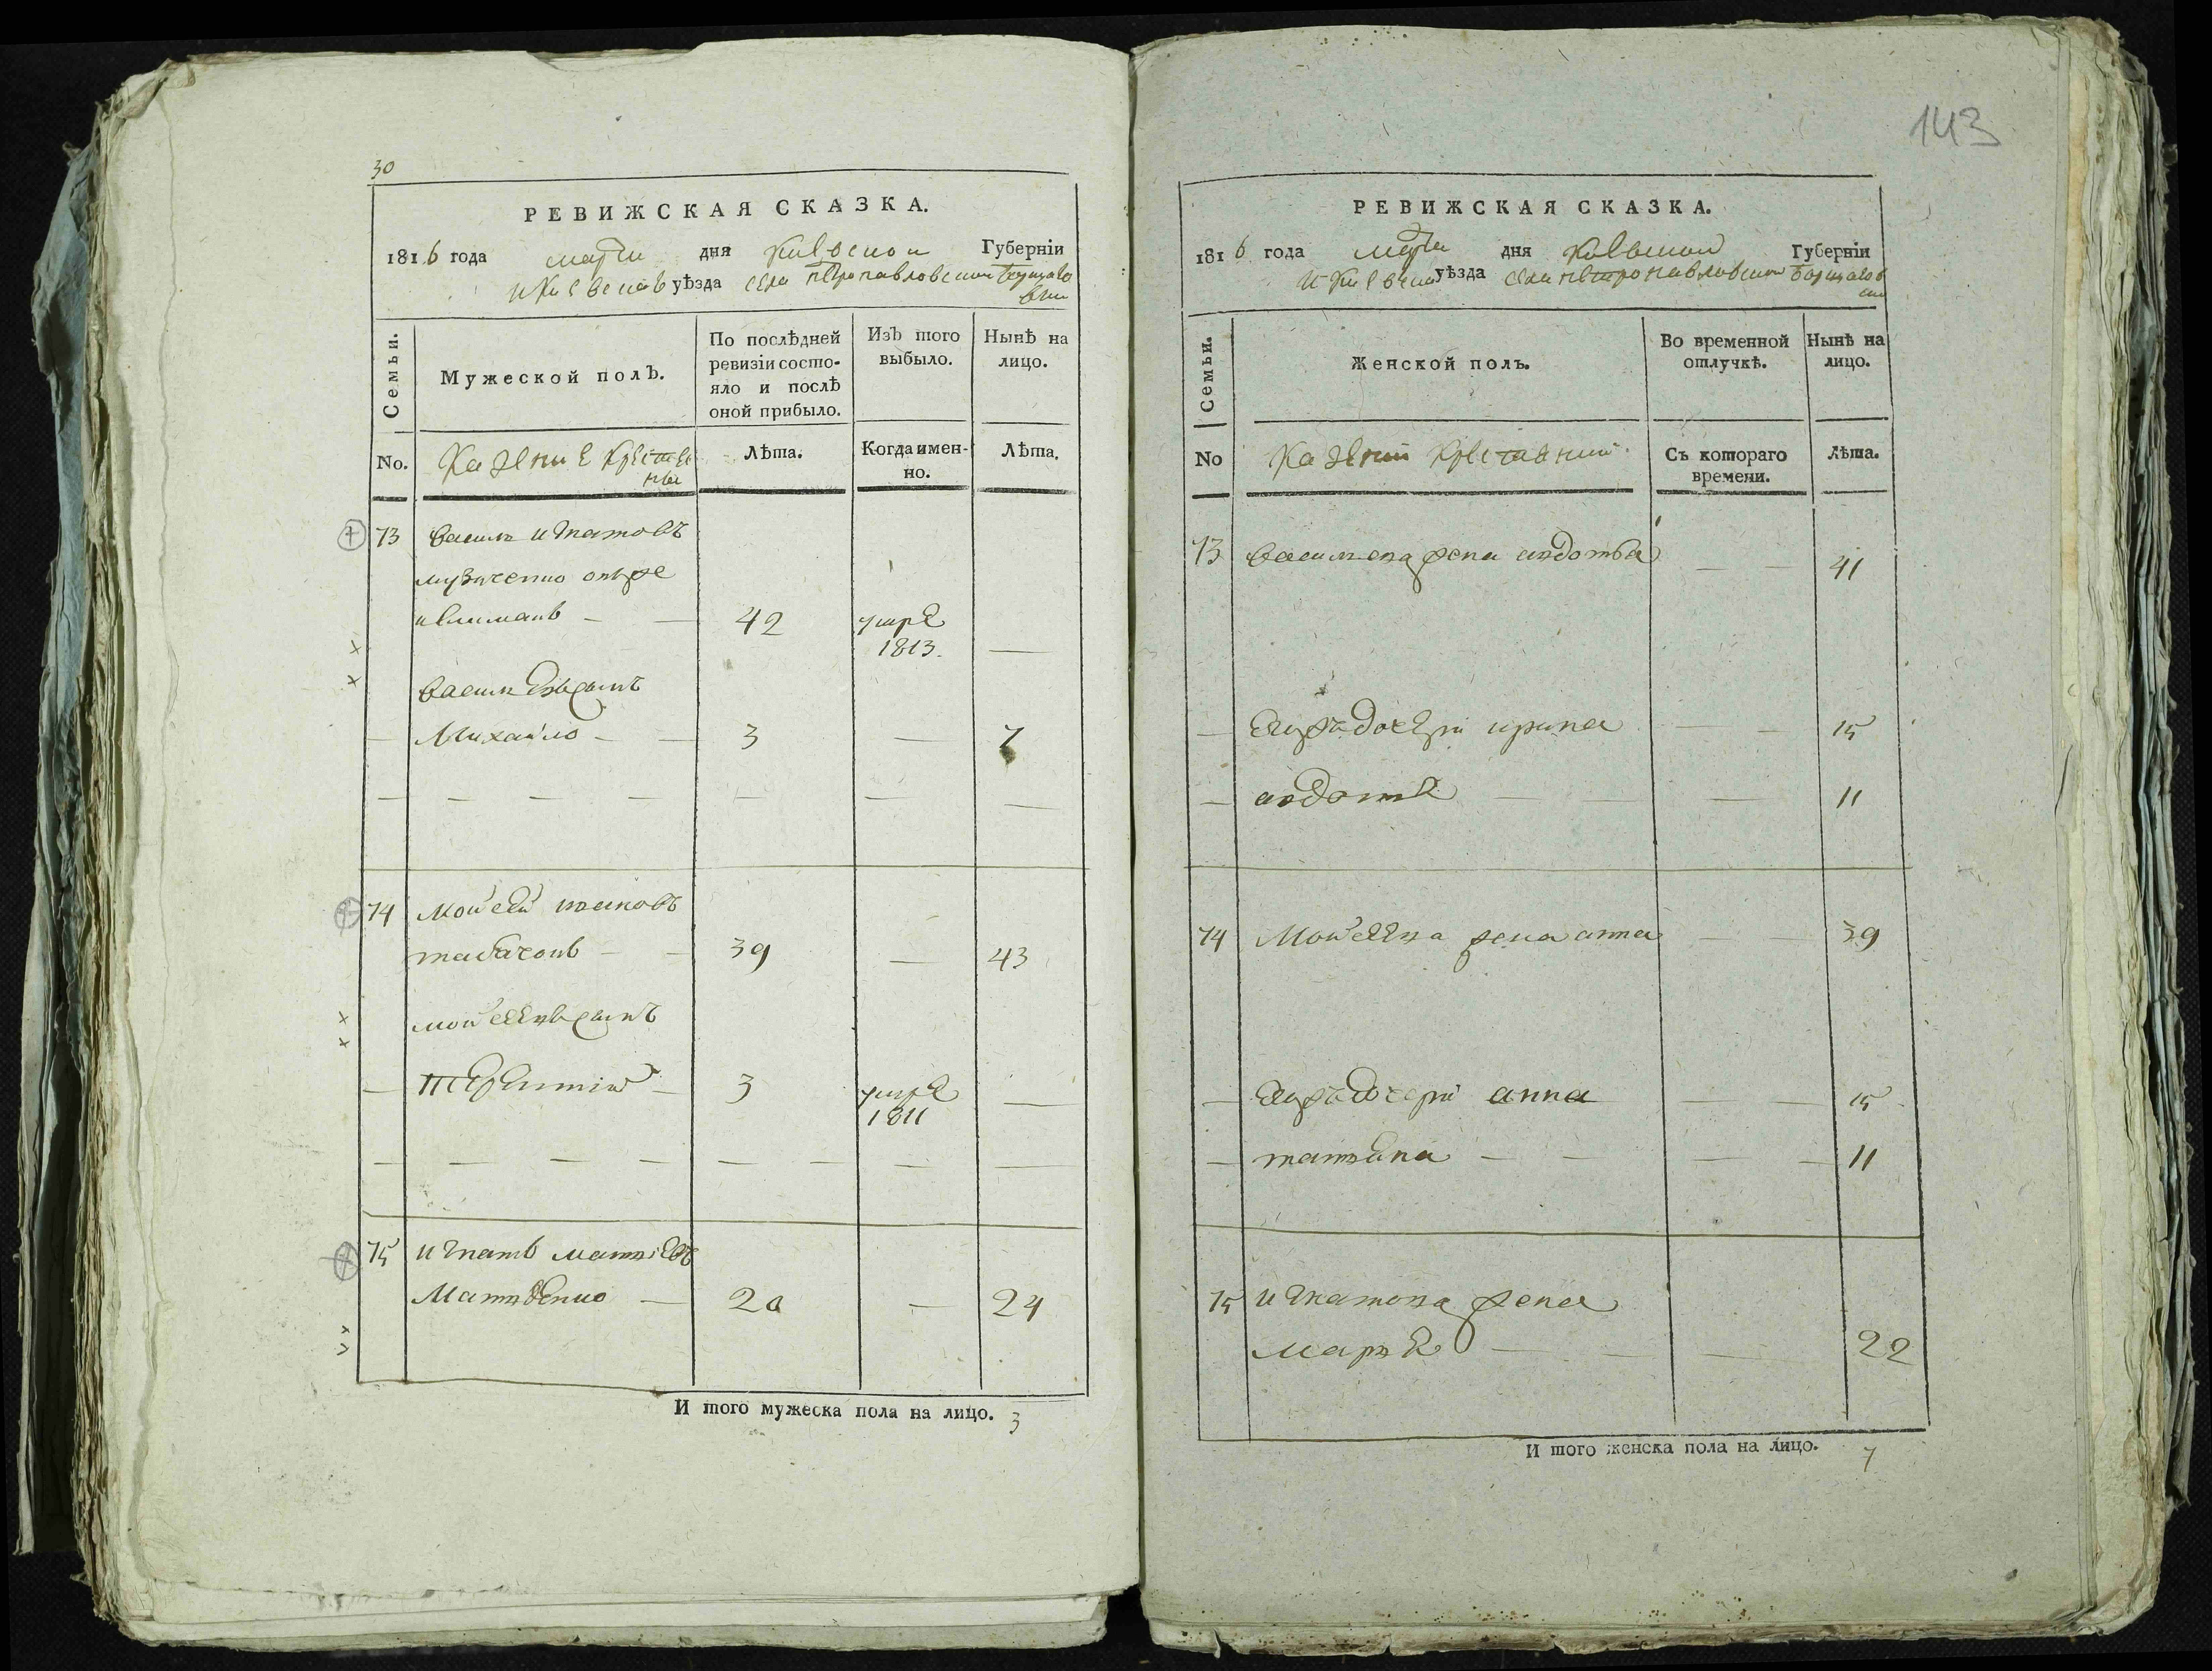 30
РЕВИЖСКАЯ СКАЗКА.
1816 года марта дня Киевской Губернїи
и Киевскаго уѣзда села петропавловской борщаговки
Семьи.
Мужеской полъ.
По послѣдней ревизїи состояло и послѣ оной прибыло.
Изъ того выбыло.
Нынѣ на лицо.
No.
Казение крестьяны
Лѣта.
Когда именно.
Лѣта.
73 василь игнатовъ
42 умре
1813.
василевъ сынъ
Михайло 3 — 7
74 мойсей
39 — 43
мойсеевъ сынъ
терентій 3 умре
1811
75 игнатъ матвіевъ
Матвѣенко — 20 — 24
И того мужеска пола на лицо. 3
143
РЕВИЖСКАЯ СКАЗКА.
1816 года марта дня Киевской Губернїи
и Киевска уѣзда села петропавловской борщаговки
Семьи.
Женской полъ.
Во временной отлучкѣ.
Нынѣ на лицо.
No
Съ котораго времени.
Лѣта.
73 василева жена авдотья — — 41
дочери ирина — — 15
авдотя — — — 11
74 Мойсеева жена анна — — 39
дочери анна — — 15
татьяна — — — — 11
75 игнатова жена
марья — — — 22
И того женска пола на лицо. 7